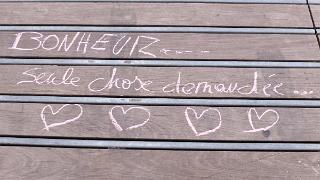 BONHEUR....
seule chose demandée...